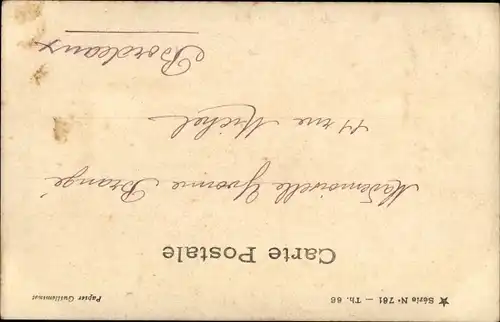 ★ Série N° 761 — Th. 66
Papier Guilleminot
Carte Postale
Mademoiselle Yvonne Brangé
11 rue Michel
Bordeaux